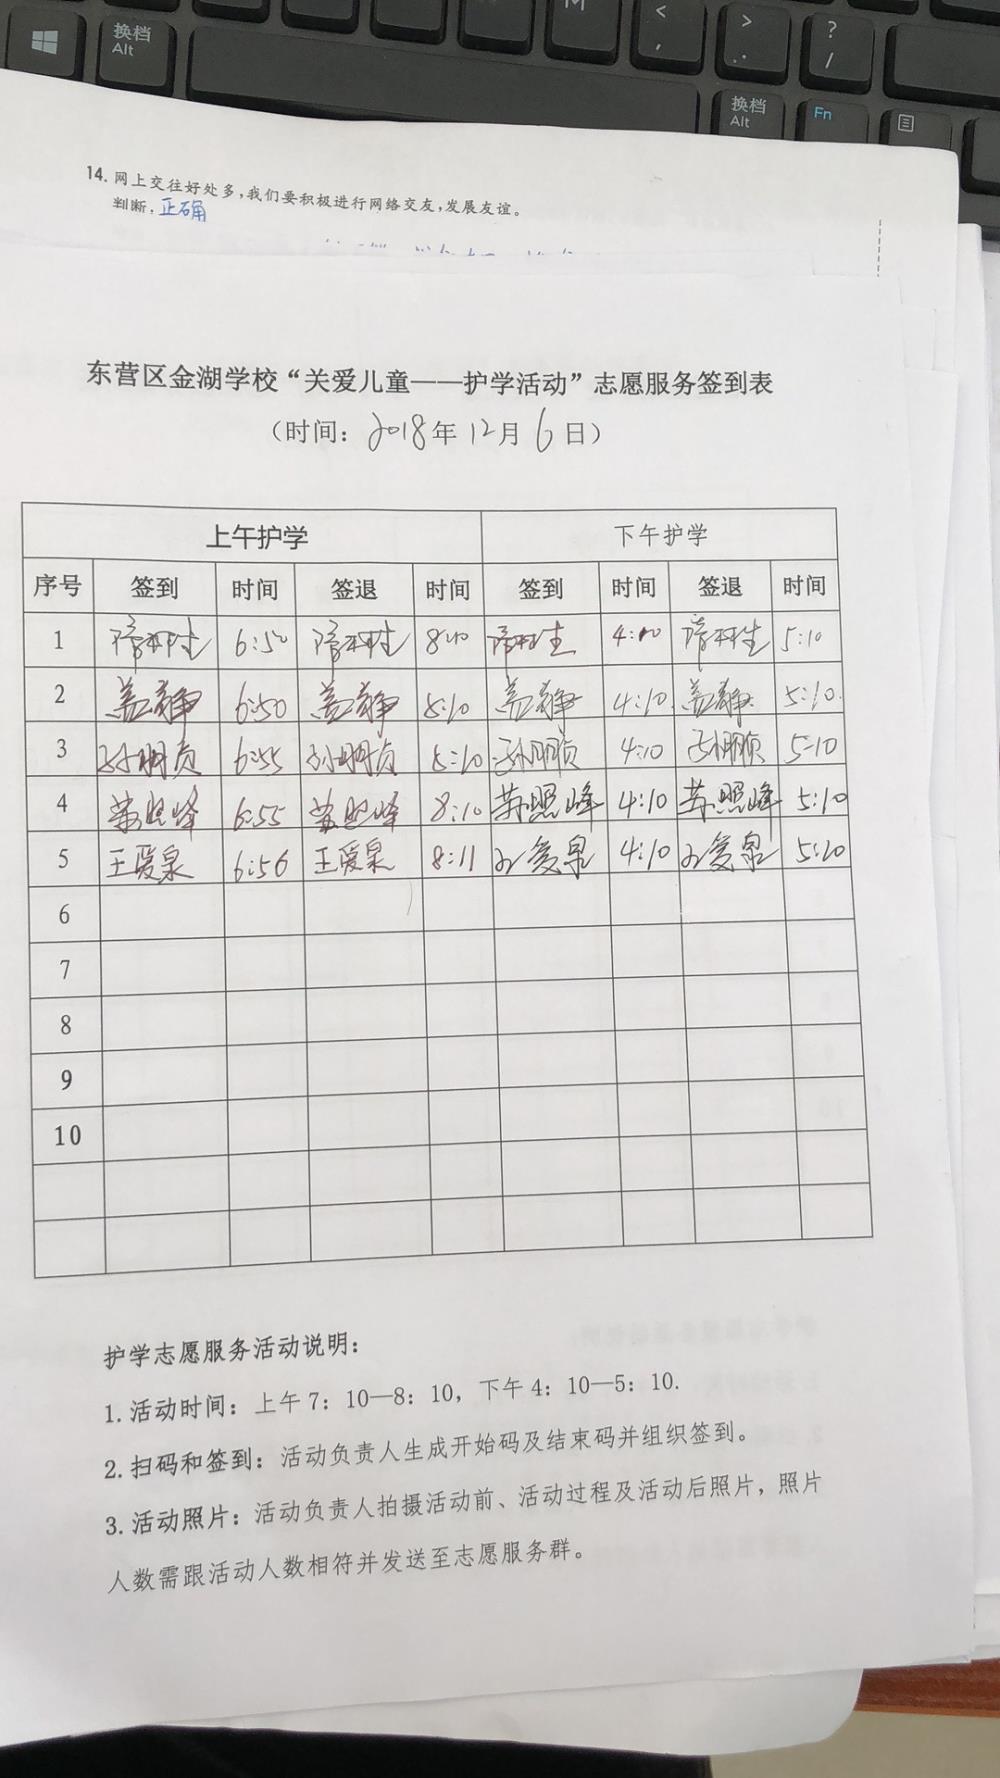 换档
Alt
M
<
,
>
.
?
/
换档
Alt
Fn
14. 网上交往好处多,我们要积极进行网络交友,发展友谊。
判断: 正确
东营区金湖学校“关爱儿童——护学活动”志愿服务签到表
(时间: 2018年 12月 6日)
上午护学 下午护学
序号 签到 时间 签退 时间 签到 时间 签退 时间
1 6:50 5:10
2 盖静 6:50 盖静 8:10 盖静 4:10 盖静 5:10.
3 6:55 8:10 4:10 5:10
4 6:55 8:10 苏照峰 4:10 苏照峰 5:10
5 王爱泉 6:56 王爱泉 8:11 4:10 5:10
6
7
8
9
10
护学志愿服务活动说明:
1.活动时间: 上午 7: 10—8: 10, 下午 4: 10—5: 10.
2.扫码和签到: 活动负责人生成开始码及结束码并组织签到。
3.活动照片: 活动负责人拍摄活动前、活动过程及活动后照片, 照片
人数需跟活动人数相符并发送至志愿服务群。